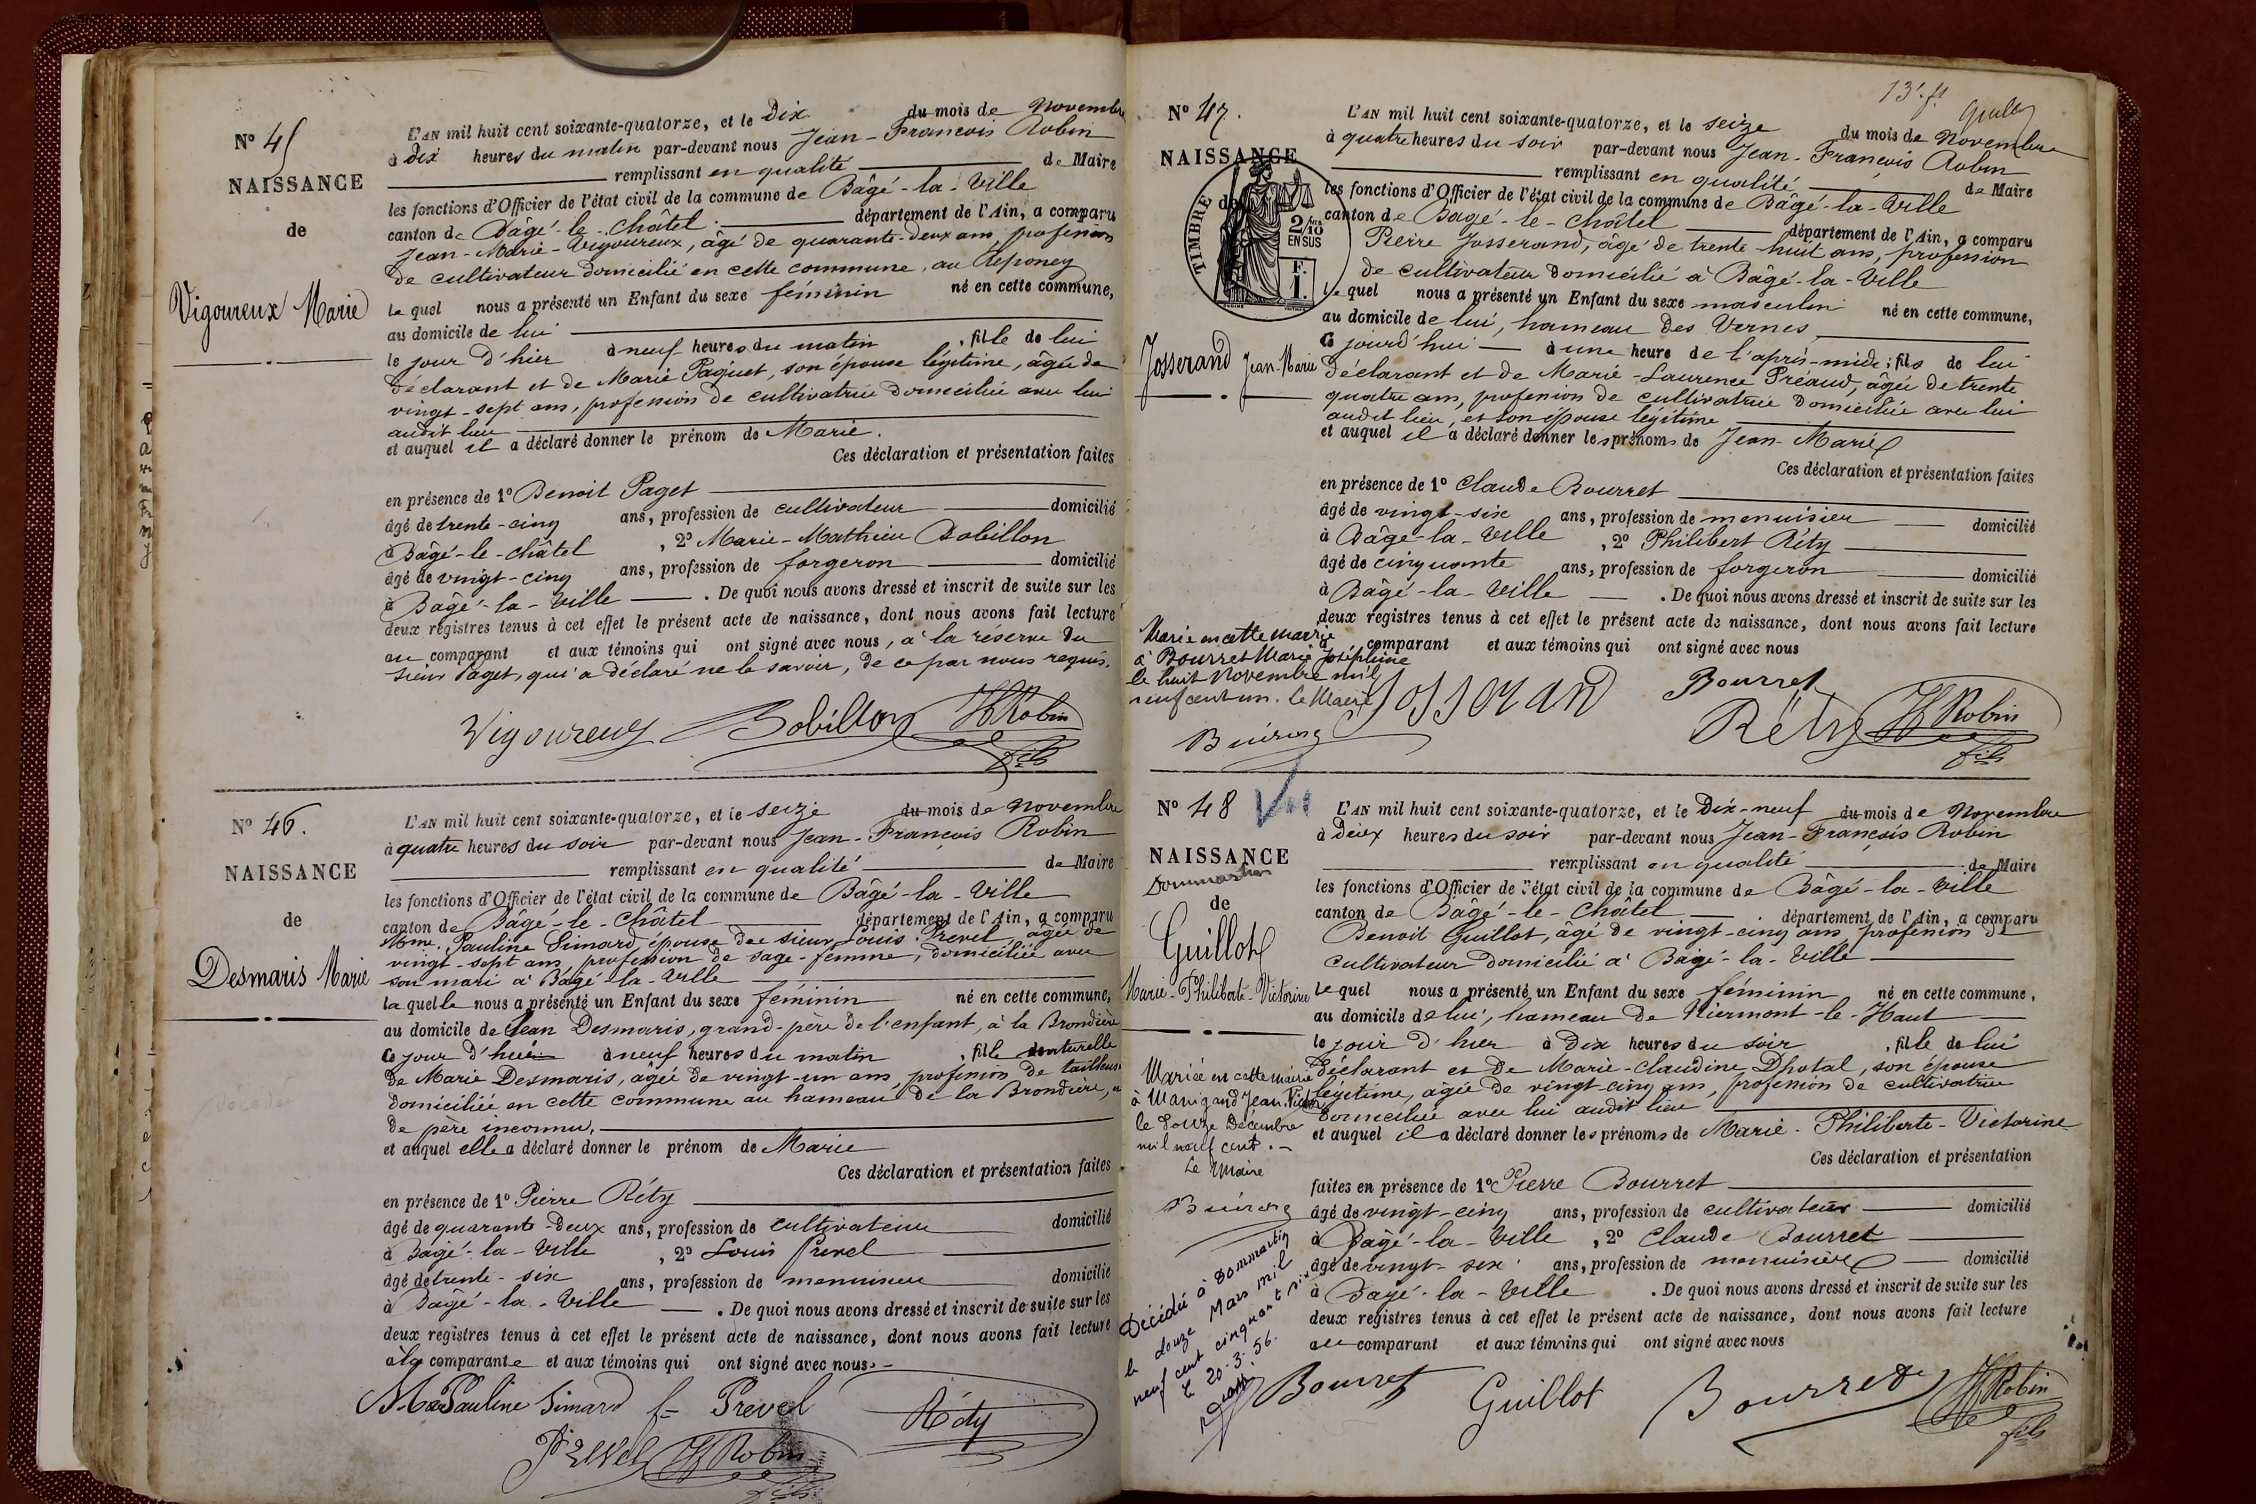 N° 45
NAISSANCE
de
Vigoureux Marie
L'AN mil huit cent soixante-quatorze, et le Dix du mois de Novembre
à Dix heures du matin par-devant nous Jean-François Robin
remplissant en qualité de Maire
les fonctions d'Officier de l'état civil de la commune de Bâgé-la-Ville
canton de Bâgé-le-Châtel département de l'Ain, a comparu
Jean-Marie Vigoureux, âgé de quarante-deux ans profession
de cultivateur domicilié en cette commune, au
le quel nous a présenté un Enfant du sexe féminin né en cette commune,
au domicile de lui
le jour d'hier à neuf heures du matin, fille de lui
déclarant et de Marie Paquet, son épouse légitime, âgée de
vingt-sept ans, profession de cultivatrice domiciliée avec lui
audit lieu
et auquel il a déclaré donner le prénom de Marie.
Ces déclaration et présentation faites
en présence de 1° Benoit Paget
âgé de trente-cinq ans, profession de cultivateur domicilié
à Bâgé-le-Châtel, 2° Marie-Mathieu Bobillon
âgé de vingt-cinq ans, profession de forgeron domicilié
à Bâgé-la-Ville. De quoi nous avons dressé et inscrit de suite sur les
deux registres tenus à cet effet le présent acte de naissance, dont nous avons fait lecture
au comparant et aux témoins qui ont signé avec nous, à la réserve du
sieur Paget, qui a déclaré ne le savoir, de ce par nous requis.
Vigoureux Bobillon Robin
fils
N° 46.
NAISSANCE
de
Desmaris Marie
L'AN mil huit cent soixante-quatorze, et le seize du mois de Novembre
à quatre heures du soir par-devant nous Jean-François Robin
remplissant en qualité de Maire
les fonctions d'Officier de l'état civil de la commune de Bâgé-la-Ville
canton de Bâgé-le-Châtel département de l'Ain, a comparu
Mme Pauline Simard, épouse de sieur Louis Prevel âgée de
vingt-sept ans, profession de sage-femme, domiciliée avec
son mari à Bâgé-la-Ville
la quelle nous a présenté un Enfant du sexe féminin né en cette commune,
au domicile de Jean Desmaris, grand-père de l'enfant, à la Brondière
Ce jour d'hui à neuf heures du matin, fille naturelle
de Marie Desmaris, âgée de vingt-un ans, profession de tailleuse
domiciliée en cette commune au hameau de la Brondière, et
de père inconnu,
et auquel elle a déclaré donner le prénom de Marie
Ces déclaration et présentation faites
en présence de 1° Pierre Réty
âgé de quarante-deux ans, profession de cultivateur domicilié
à Bâgé-la-Ville, 2° Louis Prevel
âgé de trente-six ans, profession de menuisier domicilié
à Bâgé-la-Ville. De quoi nous avons dressé et inscrit de suite sur les
deux registres tenus à cet effet le présent acte de naissance, dont nous avons fait lecture
à la comparante et aux témoins qui ont signé avec nous.
Pauline Simard Prevel Réty
Prevel Robin
fils
13e ft
N° 47.
NAISSANCE
de
TIMBRE
2/10
EN SUS
F.
1.
Josserand Jean-Marie
L'AN mil huit cent soixante-quatorze, et le seize du mois de Novembre
à quatre heures du soir par-devant nous Jean-François Robin
remplissant en qualité de Maire
les fonctions d'Officier de l'état civil de la commune de Bâgé-la-Ville
canton de Bâgé-le-Châtel département de l'Ain, a comparu
Pierre Josserand, âgé de trente huit ans, profession
de cultivateur domicilié à Bâgé-la-Ville
le quel nous a présenté un Enfant du sexe masculin né en cette commune,
au domicile de lui, hameau des Vernes
Ce jourd'hui à une heure de l'après-midi; fils de lui
déclarant et de Marie-Laurence Préaud, âgée de trente
quatre ans, profession de cultivatrice domiciliée avec lui
audit lieu, et son épouse légitime
et auquel il a déclaré donner les prénoms de Jean-Marie
Ces déclaration et présentation faites
en présence de 1° Claude Bourret
âgé de vingt-six ans, profession de menuisier domicilié
à Bâgé-la-Ville, 2° Philibert Réty
âgé de cinquante ans, profession de forgeron domicilié
à Bâgé-la-Ville. De quoi nous avons dressé et inscrit de suite sur les
deux registres tenus à cet effet le présent acte de naissance, dont nous avons fait lecture
comparant et aux témoins qui ont signé avec nous
Marié en cette mairie
à Bourret Marie Joséphine
le huit Novembre mil
neuf cent un. Le Maire
Josserand Bourret
Réty Robin
fils
N° 48
NAISSANCE
Dommartin
de
Guillot
Marie-Philiberte-Victorine
L'AN mil huit cent soixante-quatorze, et le Dix-neuf du mois de Novembre
à Deux heures du soir par-devant nous Jean-François Robin
remplissant en qualité de Maire
les fonctions d'Officier de l'état civil de la commune de Bâgé-la-Ville
canton de Bâgé-le-Châtel département de l'Ain, a comparu
Benoit Guillot, âgé de vingt-cinq ans profession de
cultivateur domicilié à Bâgé-la-Ville
le quel nous a présenté un Enfant du sexe féminin né en cette commune,
au domicile de lui, hameau de Niermont-le-Haut
le jour d'hier à dix heures du soir, fille de lui
déclarant et de Marie-Claudine Dhotal, son épouse
légitime, âgée de vingt-cinq ans, profession de cultivatrice
domiciliée avec lui audit lieu
et auquel il a déclaré donner les prénoms de Marie-Philiberte-Victorine
Ces déclaration et présentation
faites en présence de 1° Pierre Bourret
âgé de vingt-cinq ans, profession de cultivateur domicilié
à Bâgé-la-Ville, 2° Claude Bourret
âgé de vingt-six ans, profession de menuisier domicilié
à Bâgé-la-Ville. De quoi nous avons dressé et inscrit de suite sur les
deux registres tenus à cet effet le présent acte de naissance, dont nous avons fait lecture
au comparant et aux témoins qui ont signé avec nous
Mariée en cette mairie
à Manigand Jean
le Douze Décembre
mil neuf cent.
Le Maire
Décédée à Dommartin
le douze Mars mil
neuf cent cinquante six
le 20-3-56.
Bourret Guillot Bourret Robin
fils